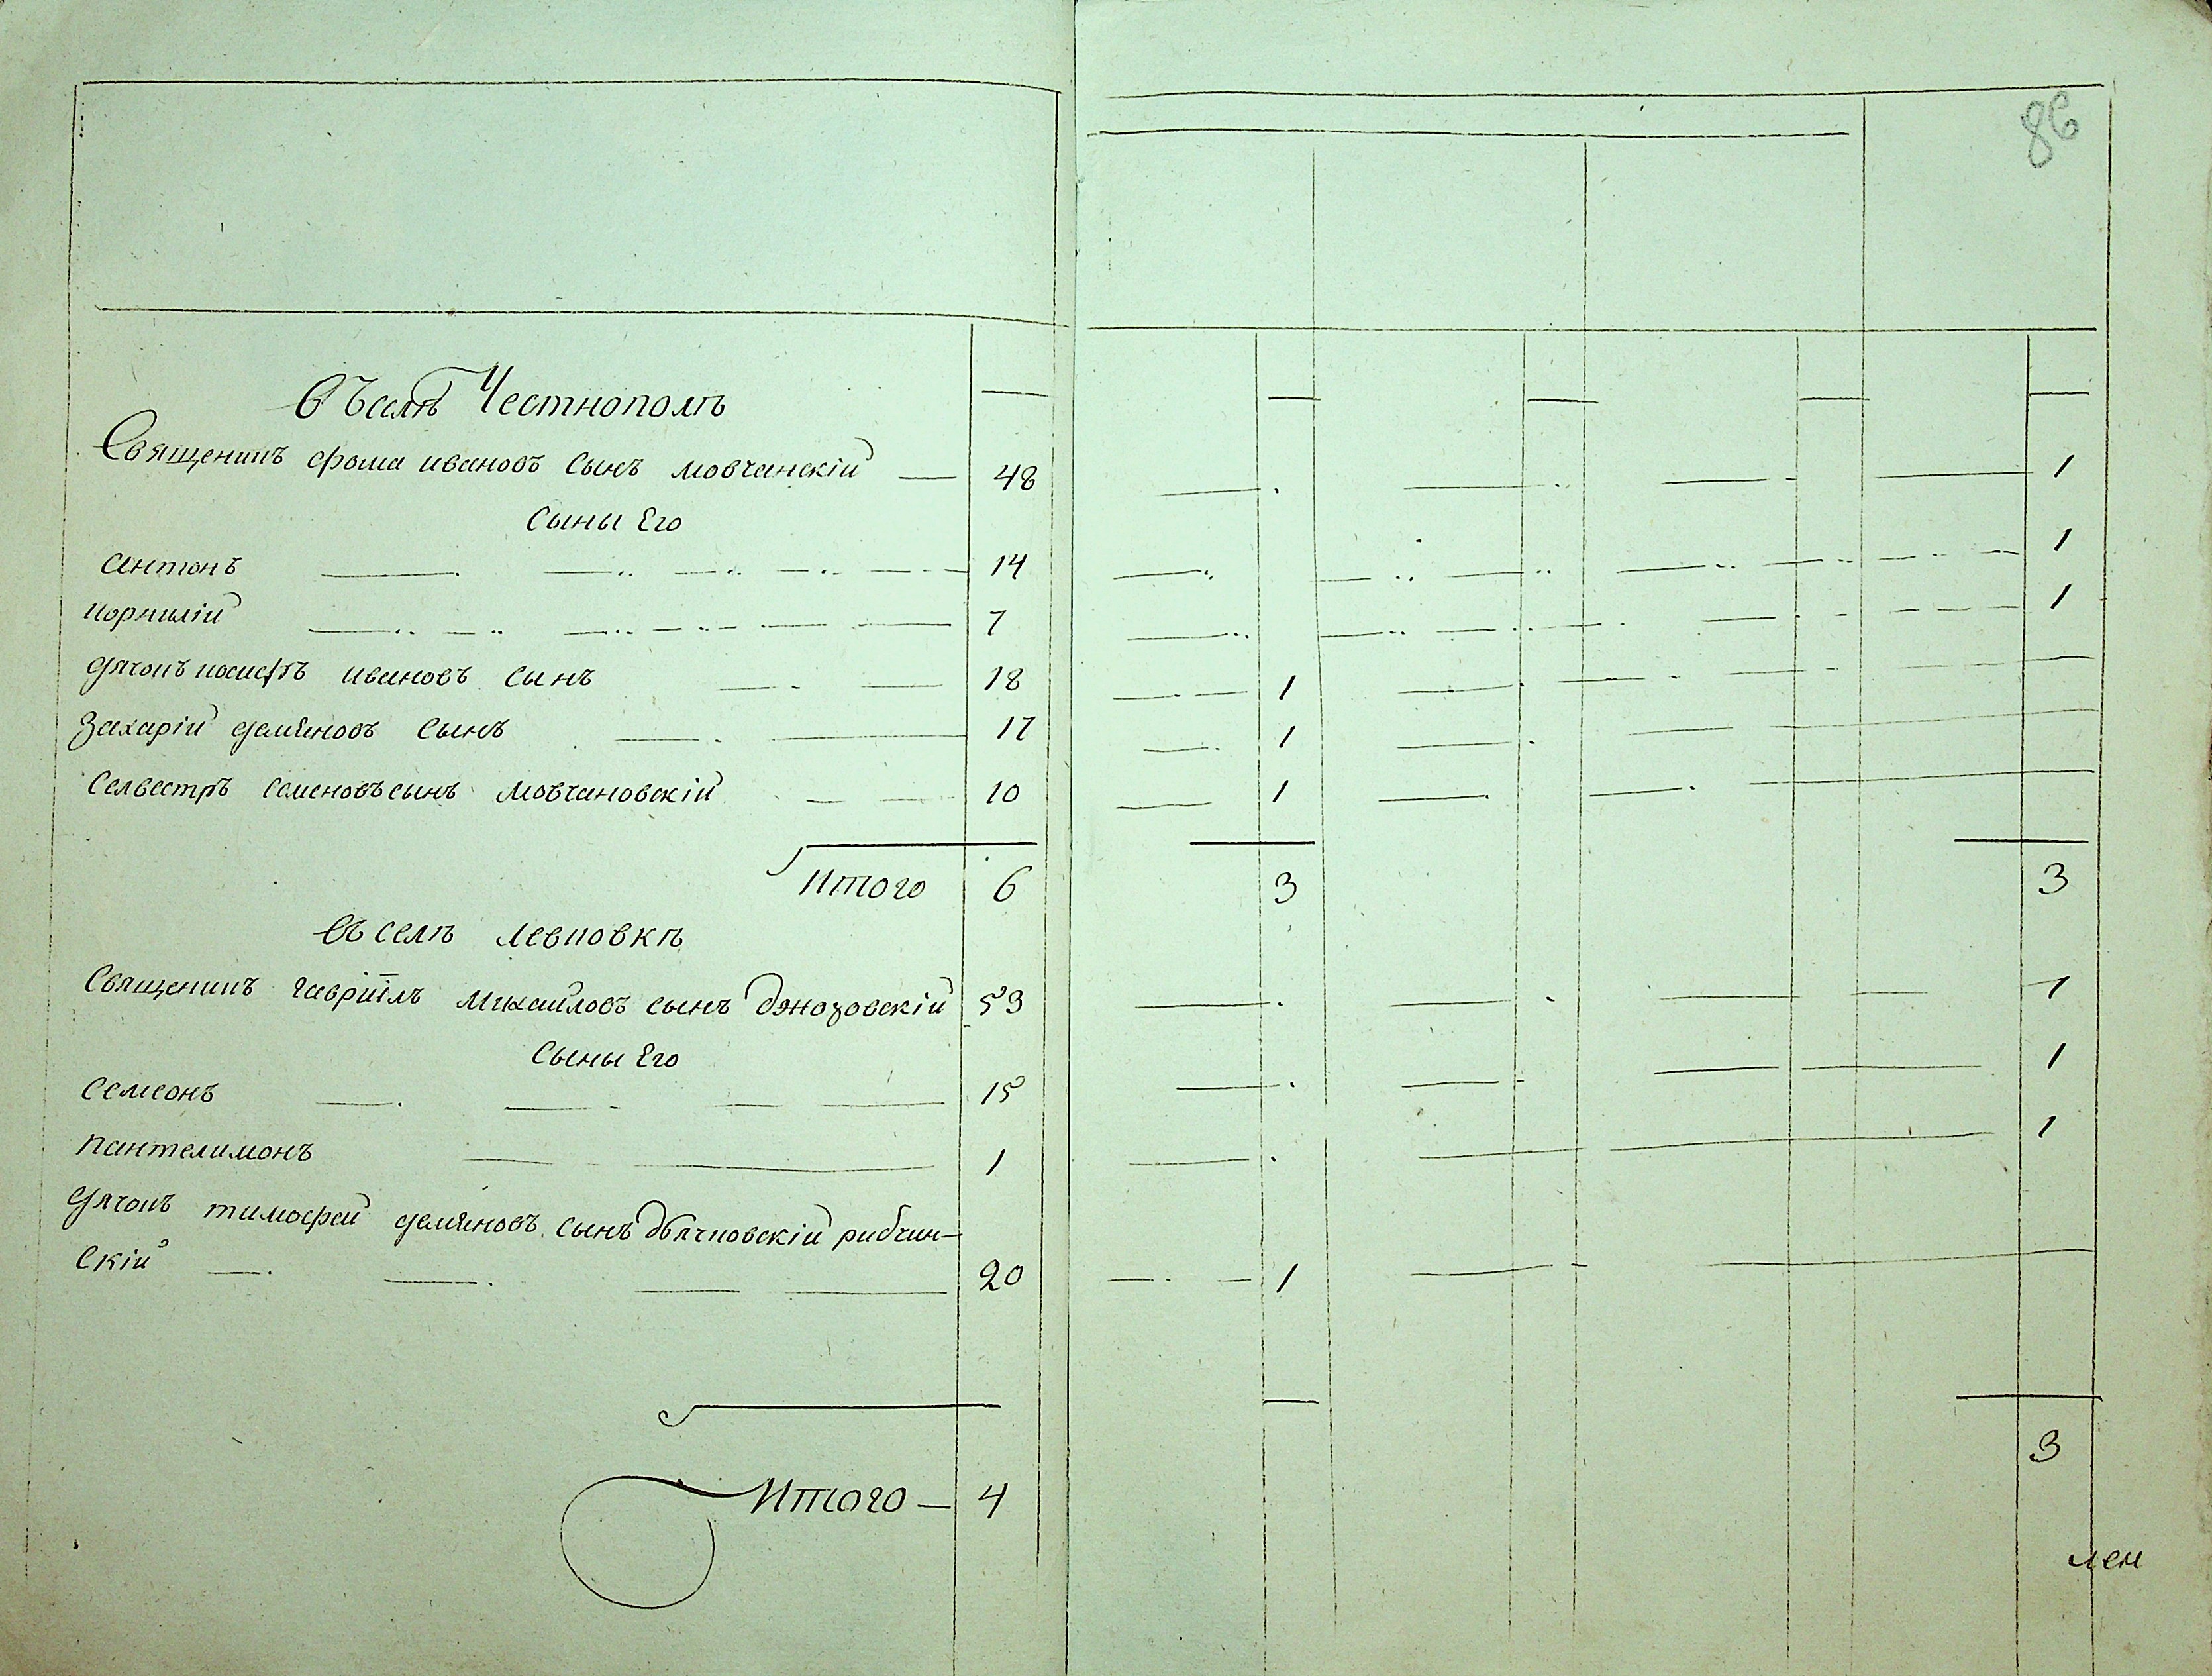 86
Въ селѣ Честнополѣ
Священикъ фома ивановъ сынъ мовчанскій 48 1
сыны Его
антонъ 14 1
корнилій 7 1
дячокъ иосифъ ивановъ сынъ 18 1
Захарій демяновъ сынъ 17 1
Селвестръ семеновъ сынъ мовчановскій 10 1
Итого 6 3 3
Въ селѣ левковкѣ
Священикъ гавріилъ михайловъ сынъ 53 1
сыны Его
семеонъ 15 1
пантелимонъ 1 1
дячокъ тимофей демяновъ сынъ рибчин-
скій 20 1
3
Итого 4
лен